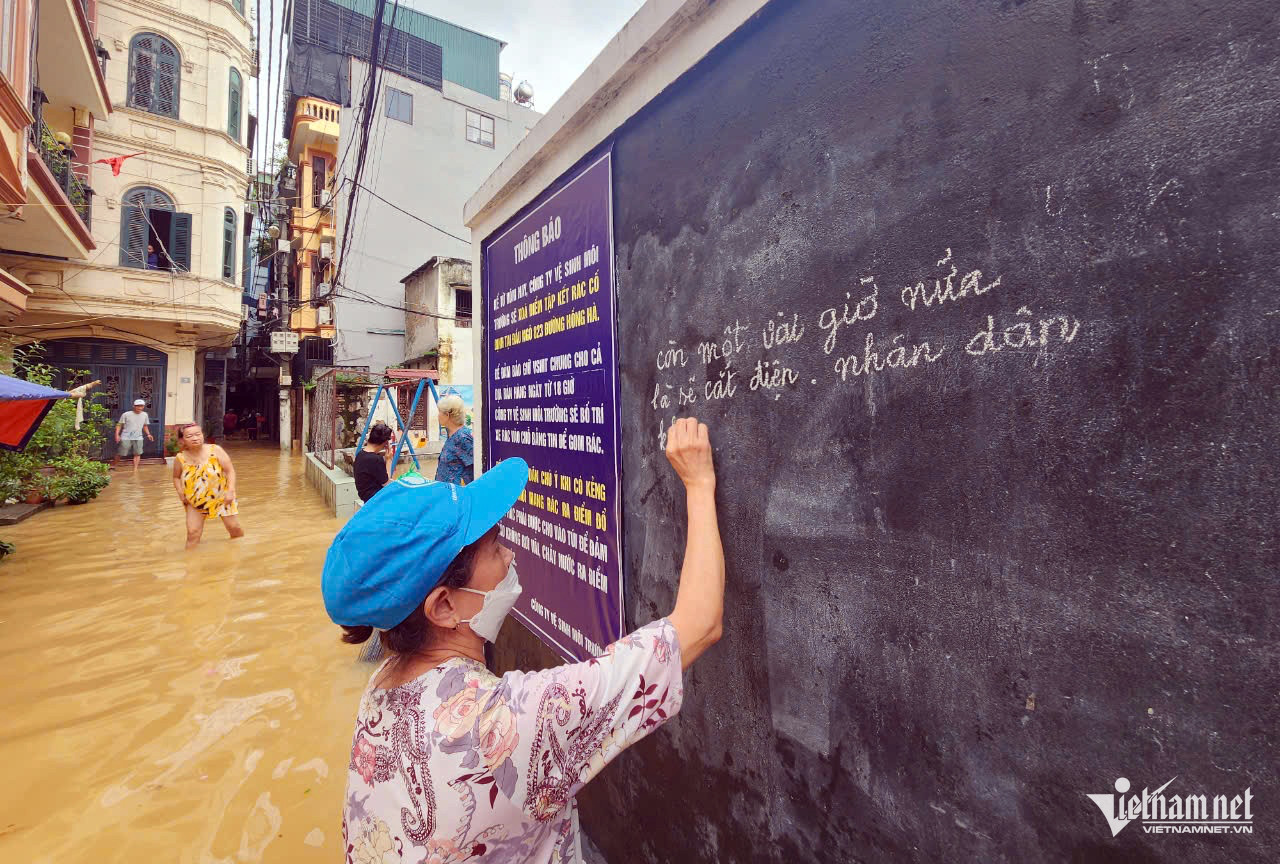 THÔNG BÁO
KỂ TỪ HÔM NAY, CÔNG TY VỆ SINH MÔI
TRƯỜNG SẼ XOÁ ĐIỂM TẬP KẾT RÁC CỐ
ĐỊNH TẠI ĐẦU NGÕ 823 ĐƯỜNG HỒNG HÀ.
ĐỂ ĐẢM BẢO GIỮ VSMT CHUNG CHO CẢ
ĐỊA BÀN HÀNG NGÀY TỪ 18 GIỜ
CÔNG TY VỆ SINH MÔI TRƯỜNG SẼ BỐ TRÍ
XE RÁC VÀO CHỖ BẢNG TIN ĐỂ GOM RÁC.
CHÚ Ý KHI CÓ KẺNG
MANG RÁC RA ĐIỂM ĐỔ
PHẢI ĐƯỢC CHO VÀO TÚI ĐỂ ĐẢM BẢO
KHÔNG RƠI VÃI, CHẢY NƯỚC RA ĐIỂM
CÔNG TY VỆ SINH MÔI TRƯỜNG
còn một vài giờ nữa
là sẽ cắt điện. nhân dân
Vietnamnet
VIETNAMNET.VN